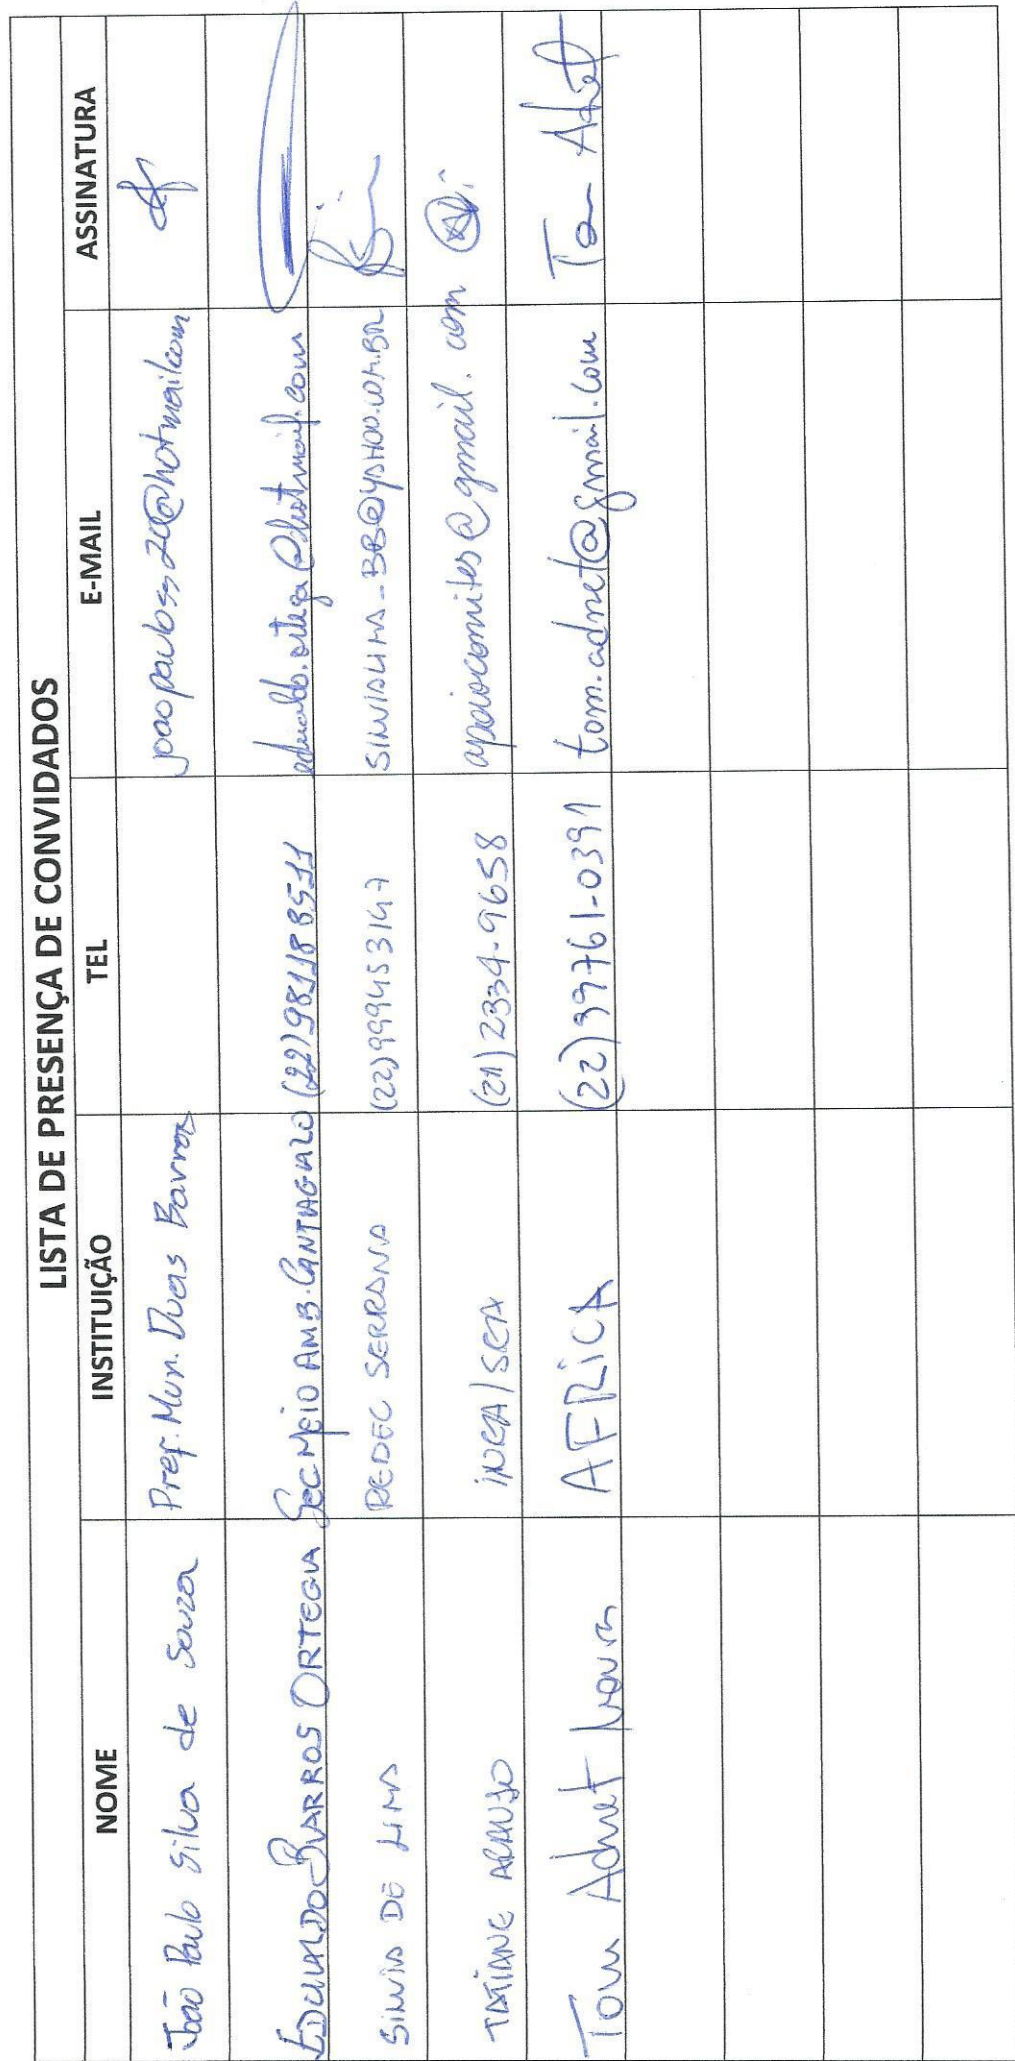 LISTA DE PRESENÇA DE CONVIDADOS
NOME INSTITUIÇÃO TEL E-MAIL ASSINATURA
João Paulo Silva de Souza Pref. Mun. Duas Barras joaopauloss20@hotmail.com
EDUALDO BARROS ORTEGA SEC MEIO AMB. CANTAGALO (22) 98118 8511 edualdo.ortega@hotmail.com
SILVIA DE LIMA REDEC SERRANA (22) 999453147 SILVIALIMA_BB@YAHOO.COM.BR
TATIANE ARAUJO INEA/SEA (21) 2334-9658 apoiocomites@gmail.com
Tom Adnet AFRICA (22) 99761-0391 tom.adnet@gmail.com Tom Adnet